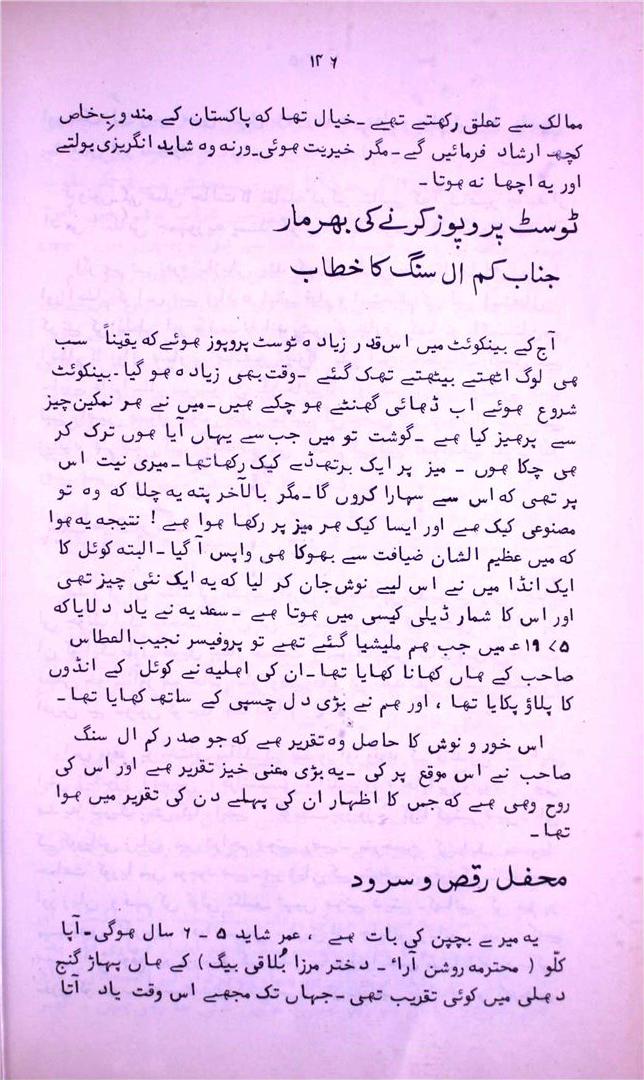 ۱۴۶
ممالک سے تعلق رکھتے تھے۔خیال تھا کہ پاکستان کے مندوبِ خاص
کچھ ارشاد فرمائیں گے۔مگر خیریت ہوئی۔ورنہ وہ شاید انگریزی بولتے
اور یہ اچھا نہ ہوتا۔
ٹوسٹ پروپوز کرنے کی بھرمار
جناب کم ال سنگ کا خطاب
آج کے بینکوئٹ میں اس قدر زیادہ ٹوسٹ پروپوز ہوئے کہ یقیناً سب
ہی لوگ اٹھتے بیٹھتے تھک گئے ۔وقت بھی زیادہ ہو گیا۔بینکوئٹ
شروع ہوئے اب ڈھائی گھنٹے ہو چکے ہیں۔میں نے ہر نمکین چیز
سے پرہیز کیا ہے ۔گوشت تو میں جب سے یہاں آیا ہوں ترک کر
ہی چکا ہوں ۔ میز پر ایک برتھ ڈے کیک رکھا تھا۔میری نیت اس
پر تھی کہ اس سے سہارا کروں گا۔مگر بالآخر پتہ یہ چلا کہ وہ تو
مصنوعی کیک ہے اور ایسا کیک ہر میز پر رکھا ہوا ہے! نتیجہ یہ ہوا
کہ میں عظیم الشان ضیافت سے بھوکا ہی واپس آ گیا۔البتہ کوئل کا
ایک انڈا میں نے اس لیے نوش جان کر لیا کہ یہ ایک نئی چیز تھی
اور اس کا شمار ڈیلی کیسی میں ہوتا ہے ۔سعدیہ نے یاد دلایا کہ
۱۹۷۵ء میں جب ہم ملیشیا گئے تھے تو پروفیسر نجیب العطاس
صاحب کے ہاں کھانا کھایا تھا۔ان کی اہلیہ نے کوئل کے انڈوں
کا پلاؤ پکایا تھا ، اور ہم نے بڑی دل چسپی کے ساتھ کھایا تھا۔
اس خور و نوش کا حاصل وہ تقریر ہے کہ جو صدر کم ال سنگ
صاحب نے اس موقع پر کی ۔یہ بڑی معنی خیز تقریر ہے اور اس کی
روح وہی ہے کہ جس کا اظہار ان کی پہلے دن کی تقریر میں ہوا
تھا۔
محفل رقص و سرود
یہ میرے بچپن کی بات ہے ، عمر شاید ۵ ۔ ۶ سال ہوگی۔آپا
کلّو ( محترمہ روشن آراء ۔ دختر مرزا بُلاقی بیگ) کے ہاں پہاڑ گنج
دہلی میں کوئی تقریب تھی ۔جہاں تک مجھے اس وقت یاد آتا